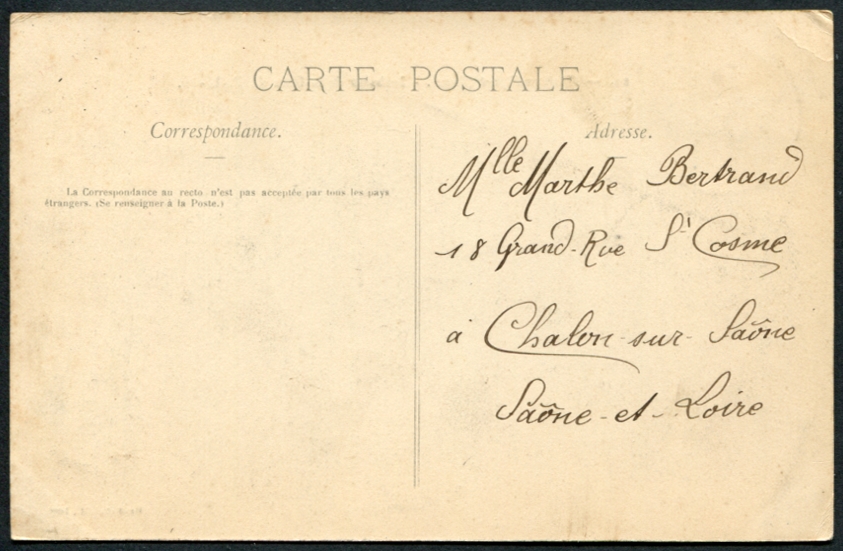 CARTE POSTALE
Correspondance.
La Correspondance au recto n'est pas acceptée par tous les pays
étrangers. (Se renseigner à la Poste.)
Adresse.
Mlle Marthe Bertrand
18 Grand-Rue St Cosme
à Chalon-sur-Saône
Saône-et-Loire